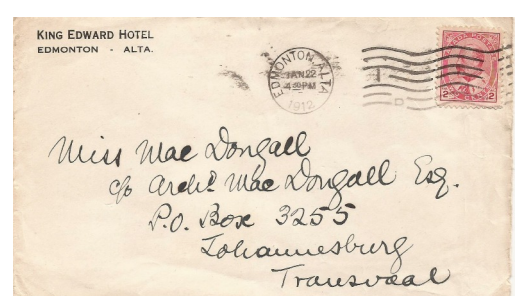 KING EDWARD HOTEL
EDMONTON - ALTA.
EDMONTON, ALTA
JAN 22
1912
2 2
Miss MacDongall
c/o Archd MacDongall Esq.
P.O. Box 3255
Johannesburg
Transvaal